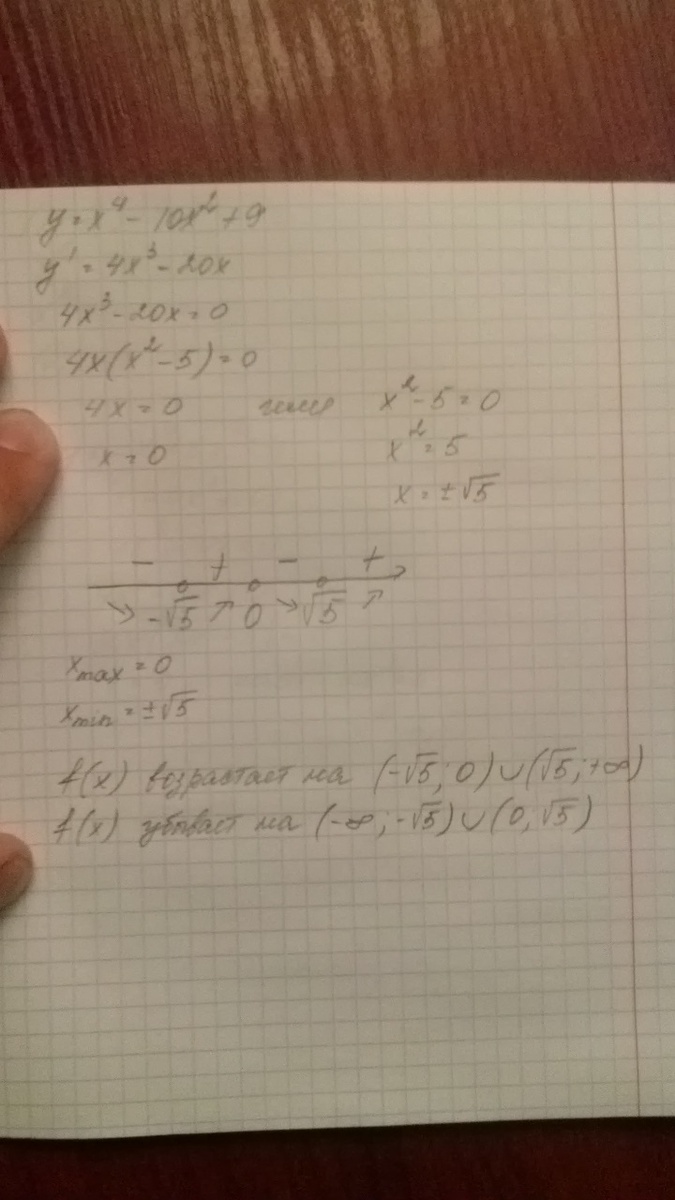 y = x⁴ - 10x² + 9
y' = 4x³ - 20x
4x³ - 20x = 0
4x(x² - 5) = 0
4x = 0 или x² - 5 = 0
x = 0 x² = 5
x = ±√5
- + - +
↘ -√5 ↗ 0 ↘ √5 ↗
xmax = 0
xmin = ±√5
f(x) возрастает на (-√5; 0) ∪ (√5; +∞)
f(x) убывает на (-∞; -√5) ∪ (0; √5)